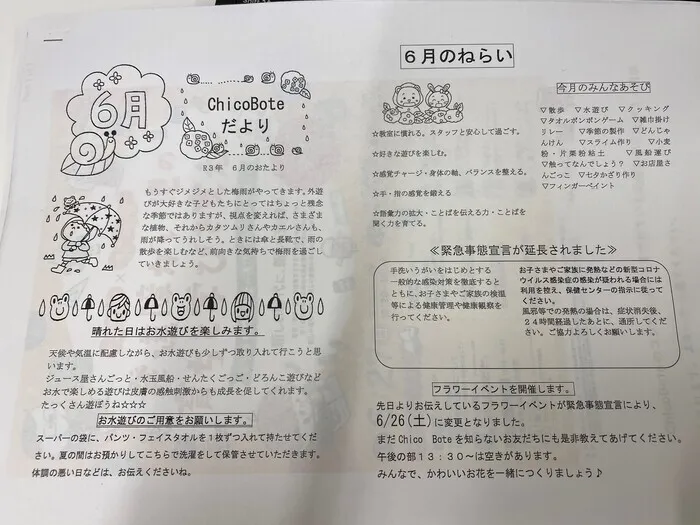 6月
ChicoBote
だより
R3年 6月のおたより
もうすぐジメジメとした梅雨がやってきます。外遊
びが大好きな子どもたちにとってはちょっと残念
な季節ではありますが、視点を変えれば、さまざま
な植物、それからカタツムリさんやカエルさんも、
雨が降ってうれしそう。ときには傘と長靴で、雨の
散歩を楽しむなど、前向きな気持ちで梅雨を過ごし
ていきましょう。
晴れた日はお水遊びを楽しみます。
天候や気温に配慮しながら、お水遊びも少しずつ取り入れて行こうと思
います。
ジュース屋さんごっと・水玉風船・せんたくごっご・どろんこ遊びなど
お水で楽しめる遊びは皮膚の感触刺激からも成長を促してくれます。
たっくさん遊ぼうね☆☆☆
お水遊びのご用意をお願いします。
スーパーの袋に、パンツ・フェイスタオルを1枚ずつ入れて持たせてくだ
さい。夏の間はお預かりしてこちらで洗濯をして保管させていただきます。
体調の悪い日などは、お伝えくださいね。
6月のねらい
☆教室に慣れる。スタッフと安心して過ごす。
☆好きな遊びを楽しむ。
☆感覚チャージ・身体の軸、バランスを整える。
☆手・指の感覚を鍛える
☆語彙力の拡大・ことばを伝える力・ことばを
聞く力を育てる。
今月のみんなあそび
▽散歩 ▽水遊び ▽クッキング
▽タオルポンポンゲーム ▽雑巾掛け
リレー ▽季節の製作 ▽どんじゃ
んけん ▽スライム作り ▽小麦
粉・片栗粉粘土 ▽風船運び
▽触ってなんでしょう？ ▽お店屋さ
んごっこ ▽七夕かざり作り
▽フィンガーペイント
≪緊急事態宣言が延長されました≫
手洗いうがいをはじめとする
一般的な感染対策を徹底すると
ともに、お子さまやご家族の検温
等による健康管理や健康観察を
行ってください。
お子さまやご家族に発熱などの新型コロナ
ウイルス感染症の感染が疑われる場合には
利用を控え、保健センターの指示に従って
ください。
風邪等での発熱の場合は、症状消失後、
24時間経過したあとに、通所してくだ
さい。ご協力よろしくお願いします。
フラワーイベントを開催します。
先日よりお伝えしているフラワーイベントが緊急事態宣言により、
6/26(土)に変更となりました。
まだChico Boteを知らないお友だちにも是非教えてあげてください。
午後の部13：30～は空きがあります。
みんなで、かわいいお花を一緒につくりましょう♪